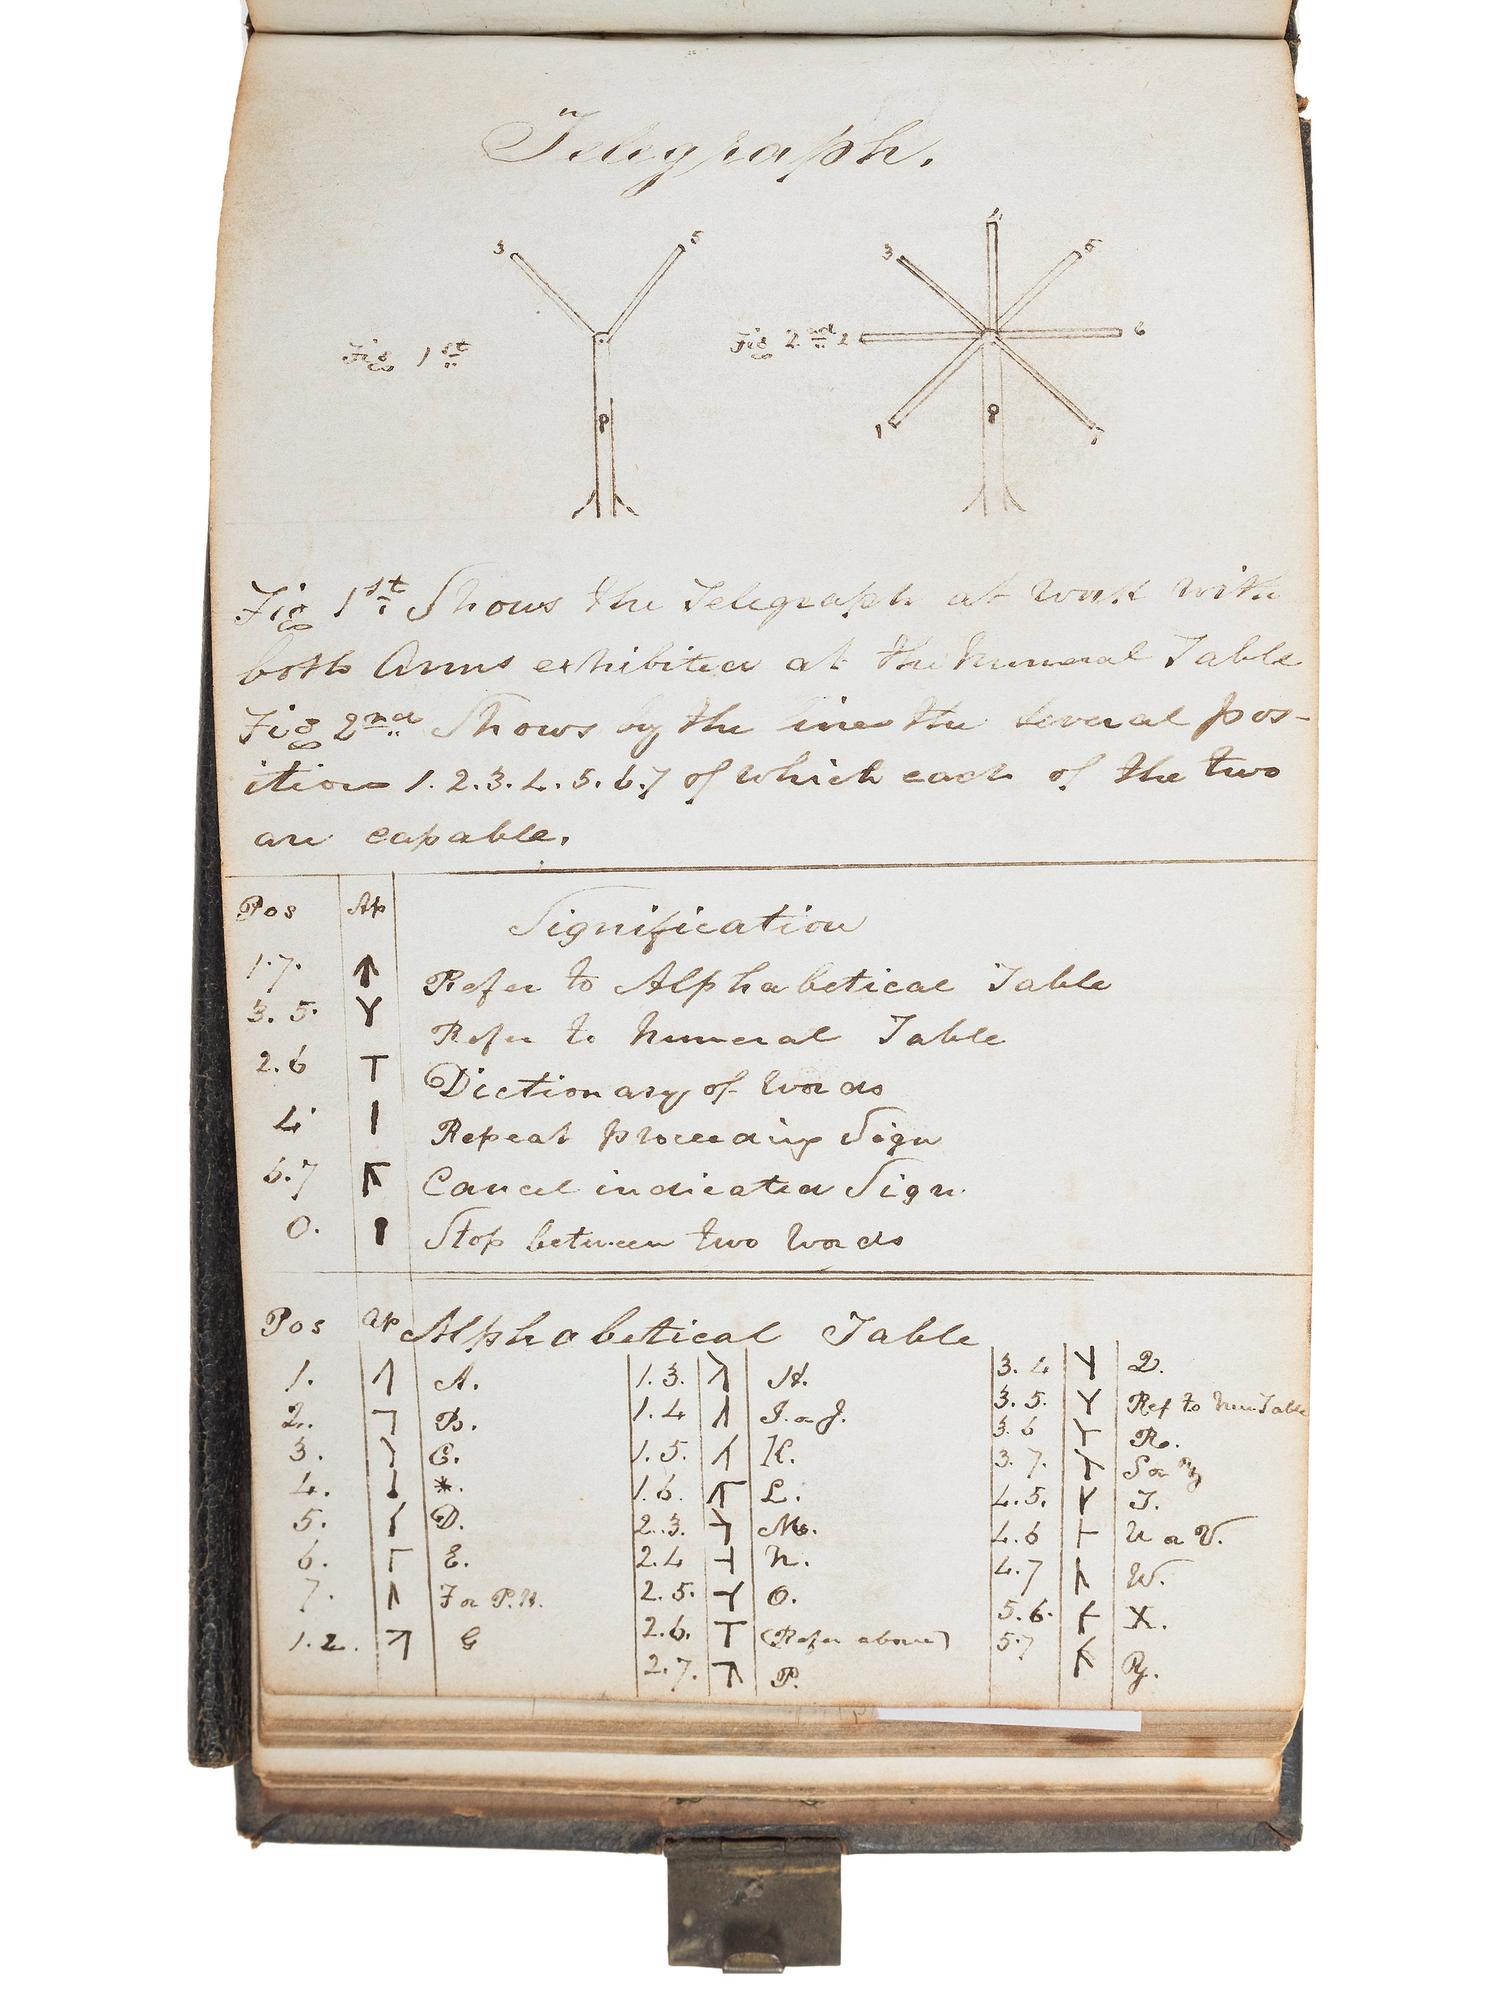 Telegraph.
3 5
4
3 5
Fig 1st
Fig 2nd 2 6
1 7
Fig 1st Shows the Telegraph at work with
both Arms exhibited at the Numeral Table
Fig 2nd Shows by the lines the several pos-
itions 1.2.3.4.5.6.7 of which each of the two
are capable.
Pos Ap Signification
1.7. Refer to Alphabetical Table
3.5. Refer to Numeral Table
2.6 Dictionary of Words
4 Repeat preceeding Sign
6.7 Cancel indicated Sign.
0. Stop between two Words
Pos Ap Alphabetical Table
1. A. 1.3. H. 3.4 Q.
2. B. 1.4 I. or J. 3.5. Ref to Num Table
3. C. 1.5. K. 3.6 R.
4. *. 1.6. L. 3.7. S or
5. D. 2.3. M. 4.5. T.
6. E. 2.4 N. 4.6 U or V.
7. F or P.H. 2.5. O. 4.7 W.
1.2. G 2.6. (Refer above) 5.6. X.
2.7. P. 5.7 Y.